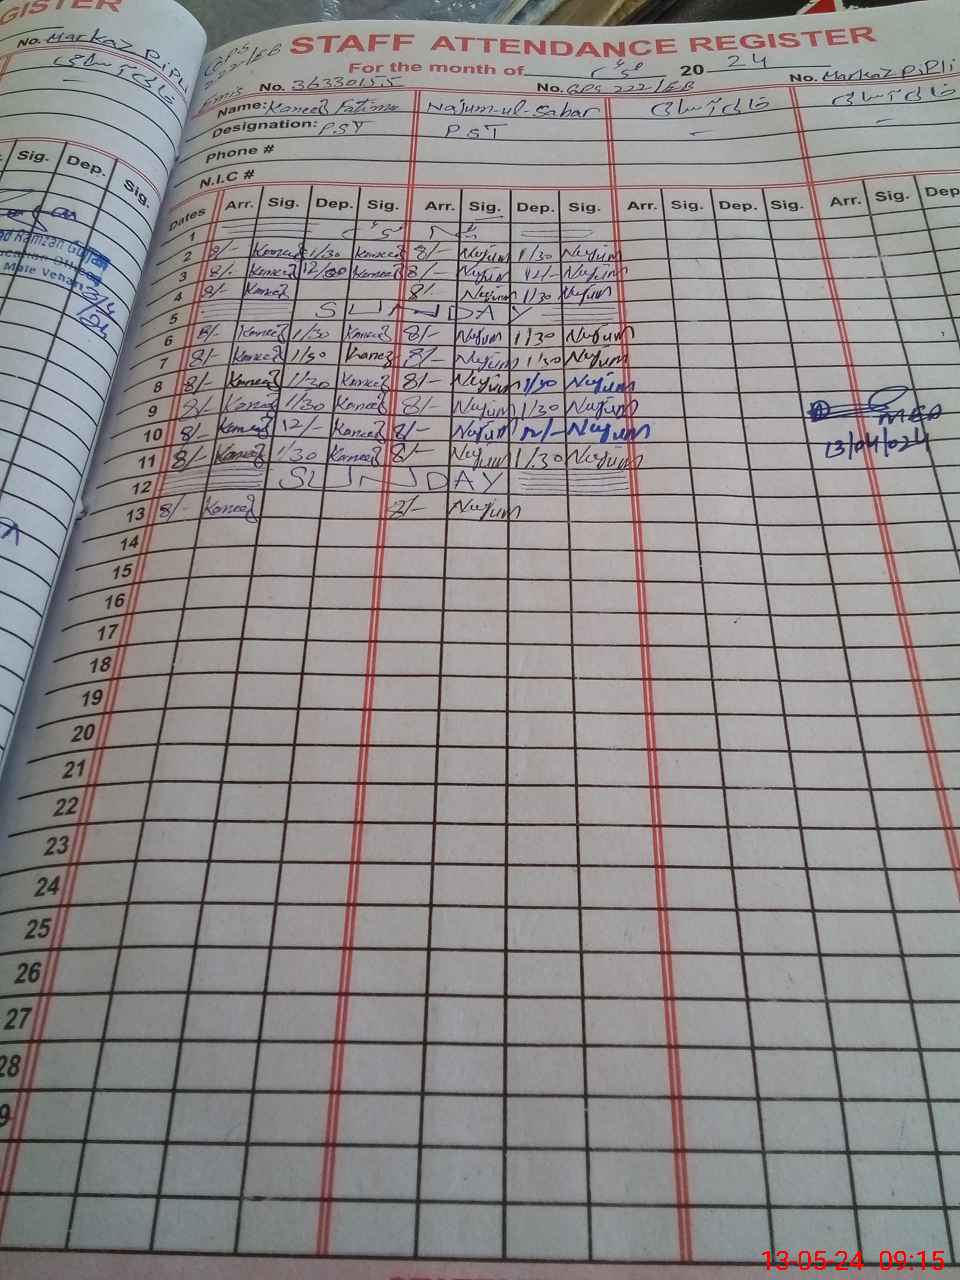 GISTER
No. Markaz Pipli
خالی آسامی
Sig. Dep. Sig.
STAFF ATTENDANCE REGISTER
GPS 222/EB
For the month of مئی 2024
Emis No. 36330155 No. GPS 222/EB No. Markaz Pipli
Name: Kaneez Fatima Najum-ul-Sahar خالی آسامی خالی آسامی
Designation: PST PST – –
Phone #
N.I.C #
Dates Arr. Sig. Dep. Sig. Arr. Sig. Dep. Sig. Arr. Sig. Dep. Sig. Arr. Sig. Dep
1
2 8/- Kaneez 1/30 Kaneez 8/- Nujum 1/30 Nujum
3 8/- Kaneez 12/00 Kaneez 8/- Nujum 12/- Nujum
4 8/- Kaneez 8/- Nujum 1/30 Nujum
5 SUNDAY
6 8/- Kaneez 1/30 Kaneez 8/- Nujum 1/30 Nujum
7 8/- Kaneez 1/30 Kaneez 8/- Nujum 1/30 Nujum
8 8/- Kaneez 1/30 Kaneez 8/- Nujum 1/30 Nujum
9 8/- Kaneez 1/30 Kaneez 8/- Nujum 1/30 Nujum
10 8/- Kaneez 12/- Kaneez 8/- Nujum 12/- Nujum
11 8/- Kaneez 1/30 Kaneez 8/- Nujum 1/30 Nujum
MEO
13/04/024
12 SUNDAY
13 8/- Kaneez 8/- Nujum
14
15
16
17
18
19
20
21
22
23
24
25
26
27
28
9
13-05-24 09:15